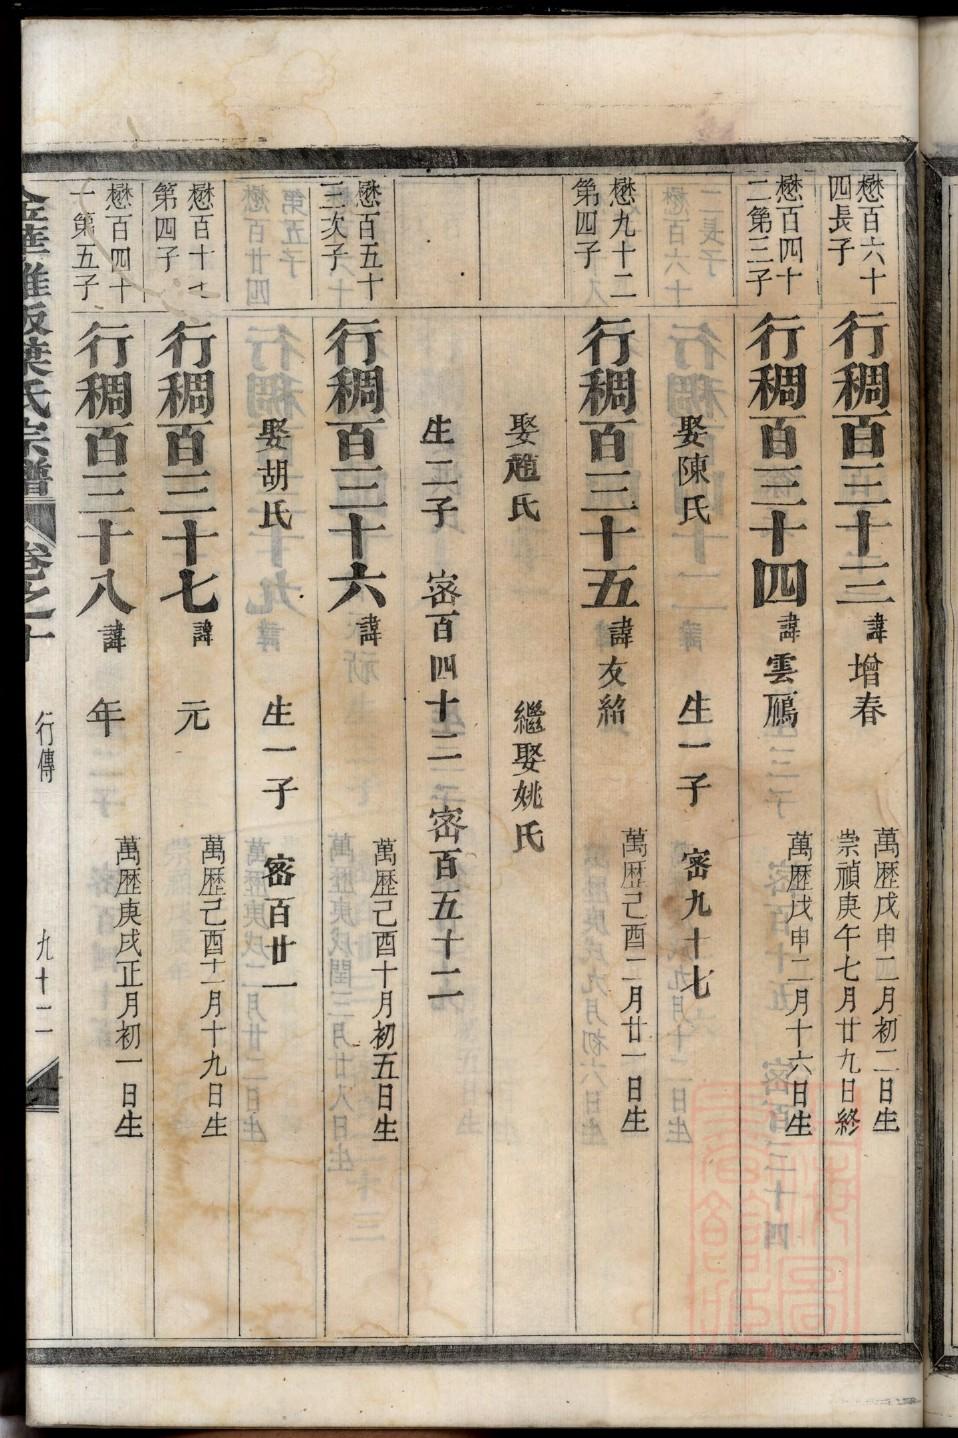 懋百六十
四長子
行稠百三十三
諱
增春
萬歷戊申二月初二日生
崇禎庚午七月廿九日終
懋百四十
二第三子
行稠百三十四
諱
雲鴈
萬歷戊申二月十六日生
娶陳氏
生一子
密九十七
懋九十二
第四子
行稠百三十五
諱
友紹
萬歷己酉二月廿一日生
娶趙氏
繼娶姚氏
生二子
密百四十二
密百五十二
懋百五十
三次子
行稠百三十六
諱
萬歷己酉十月初五日生
娶胡氏
生一子
密百廿一
懋百十七
第四子
行稠百三十七
諱
元
萬歷己酉十一月十九日生
懋百四十
一第五子
行稠百三十八
諱
年
萬歷庚戌正月初一日生
葉氏宗譜
卷之十
行傳
九十二